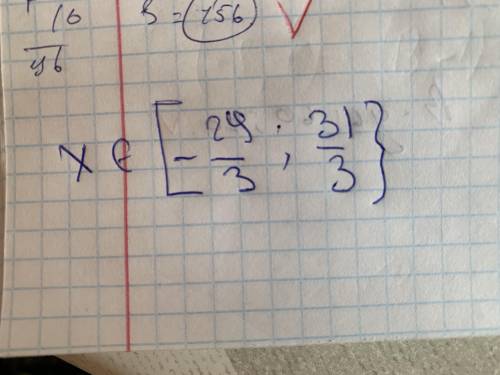 10
46
= 156
x ∈ [-29/3; 31/3}